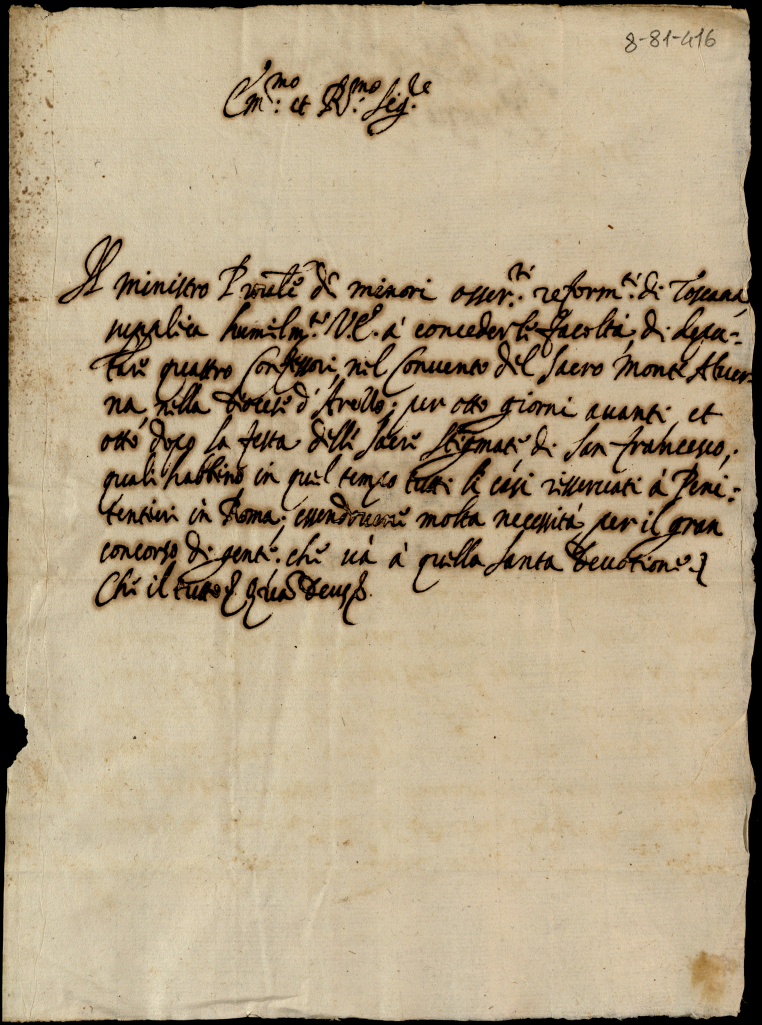 8-81-416
Em.mo et R.mo Sig.re
Il ministro P de minori osser.ti reform.ti di Toscana
supplica humilm.te V.E. à concederli facoltà di depu=
tare quattro Confessori, nel Convento del Sacro Monte Aluer=
na, nella Diocese d'Arezzo; per otto giorni auanti, et
otto dopo la festa delle Sacre Stigmate di San francesco;
quali habbino in quel tempo tutti li casi risseruati à Peni=
tentieri in Roma; molta necessità per il gran
concorso di gente, che uà à quella santa Deuotione.
Che il tutto Deus